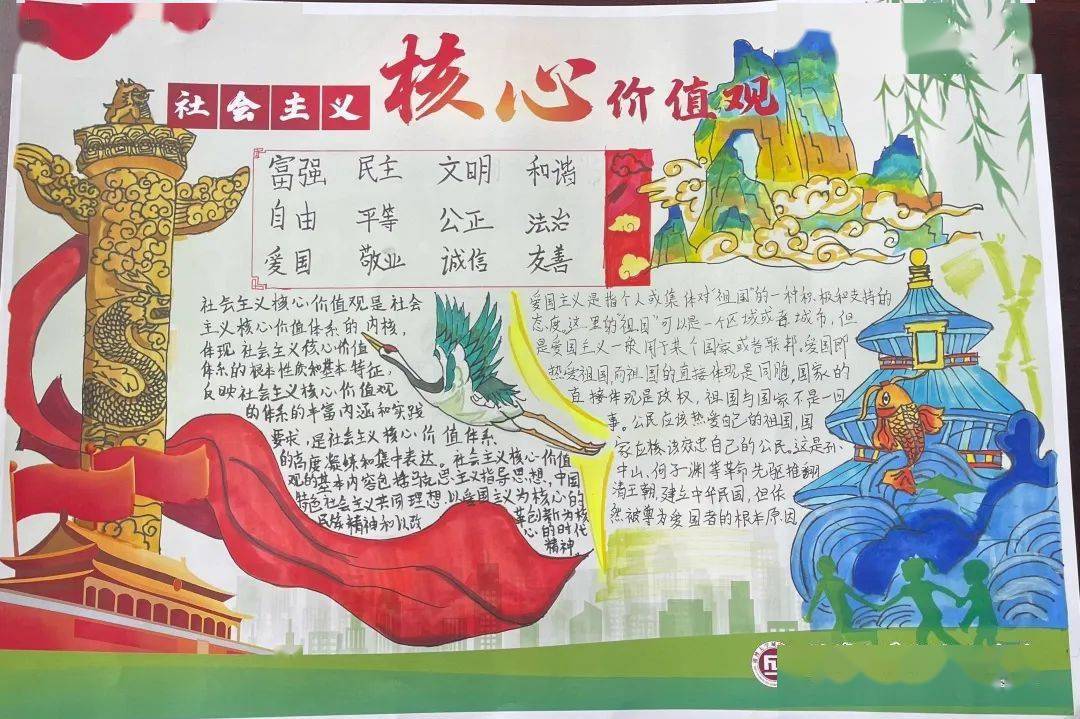 社会主义核心价值观
富强 民主 文明 和谐
自由 平等 公正 法治
爱国 敬业 诚信 友善
社会主义核心价值观是社会
主义核心价值体系的内核，
体现社会主义核心价值
体系的根本性质和基本特征，
反映社会主义核心价值观
的体系的丰富内涵和实践
要求，是社会主义核心价值体系
的高度凝练和集中表达。社会主义核心价值
观的基本内容包括马克思主义指导思想，中国
特色社会主义共同理想，以爱国主义为核心的
民族精神和以改
革创新为核
心的时代
精神。
爱国主义是指个人或集体对"祖国"的一种积极和支持的
态度。这里的"祖国"可以是一个区域或者城市，但
是爱国主义一般用于某个国家或者联邦。爱国即
热爱祖国，而祖国的直接体现是同胞，国家的
直接体现是政权，祖国与国家不是一回
事。公民应该热爱自己的祖国，国
家应核该效忠自己的公民。这是孙
中山，何子渊等革命先驱推翻
清王朝，建立中华民国，但依
然被尊为爱国者的根本原因